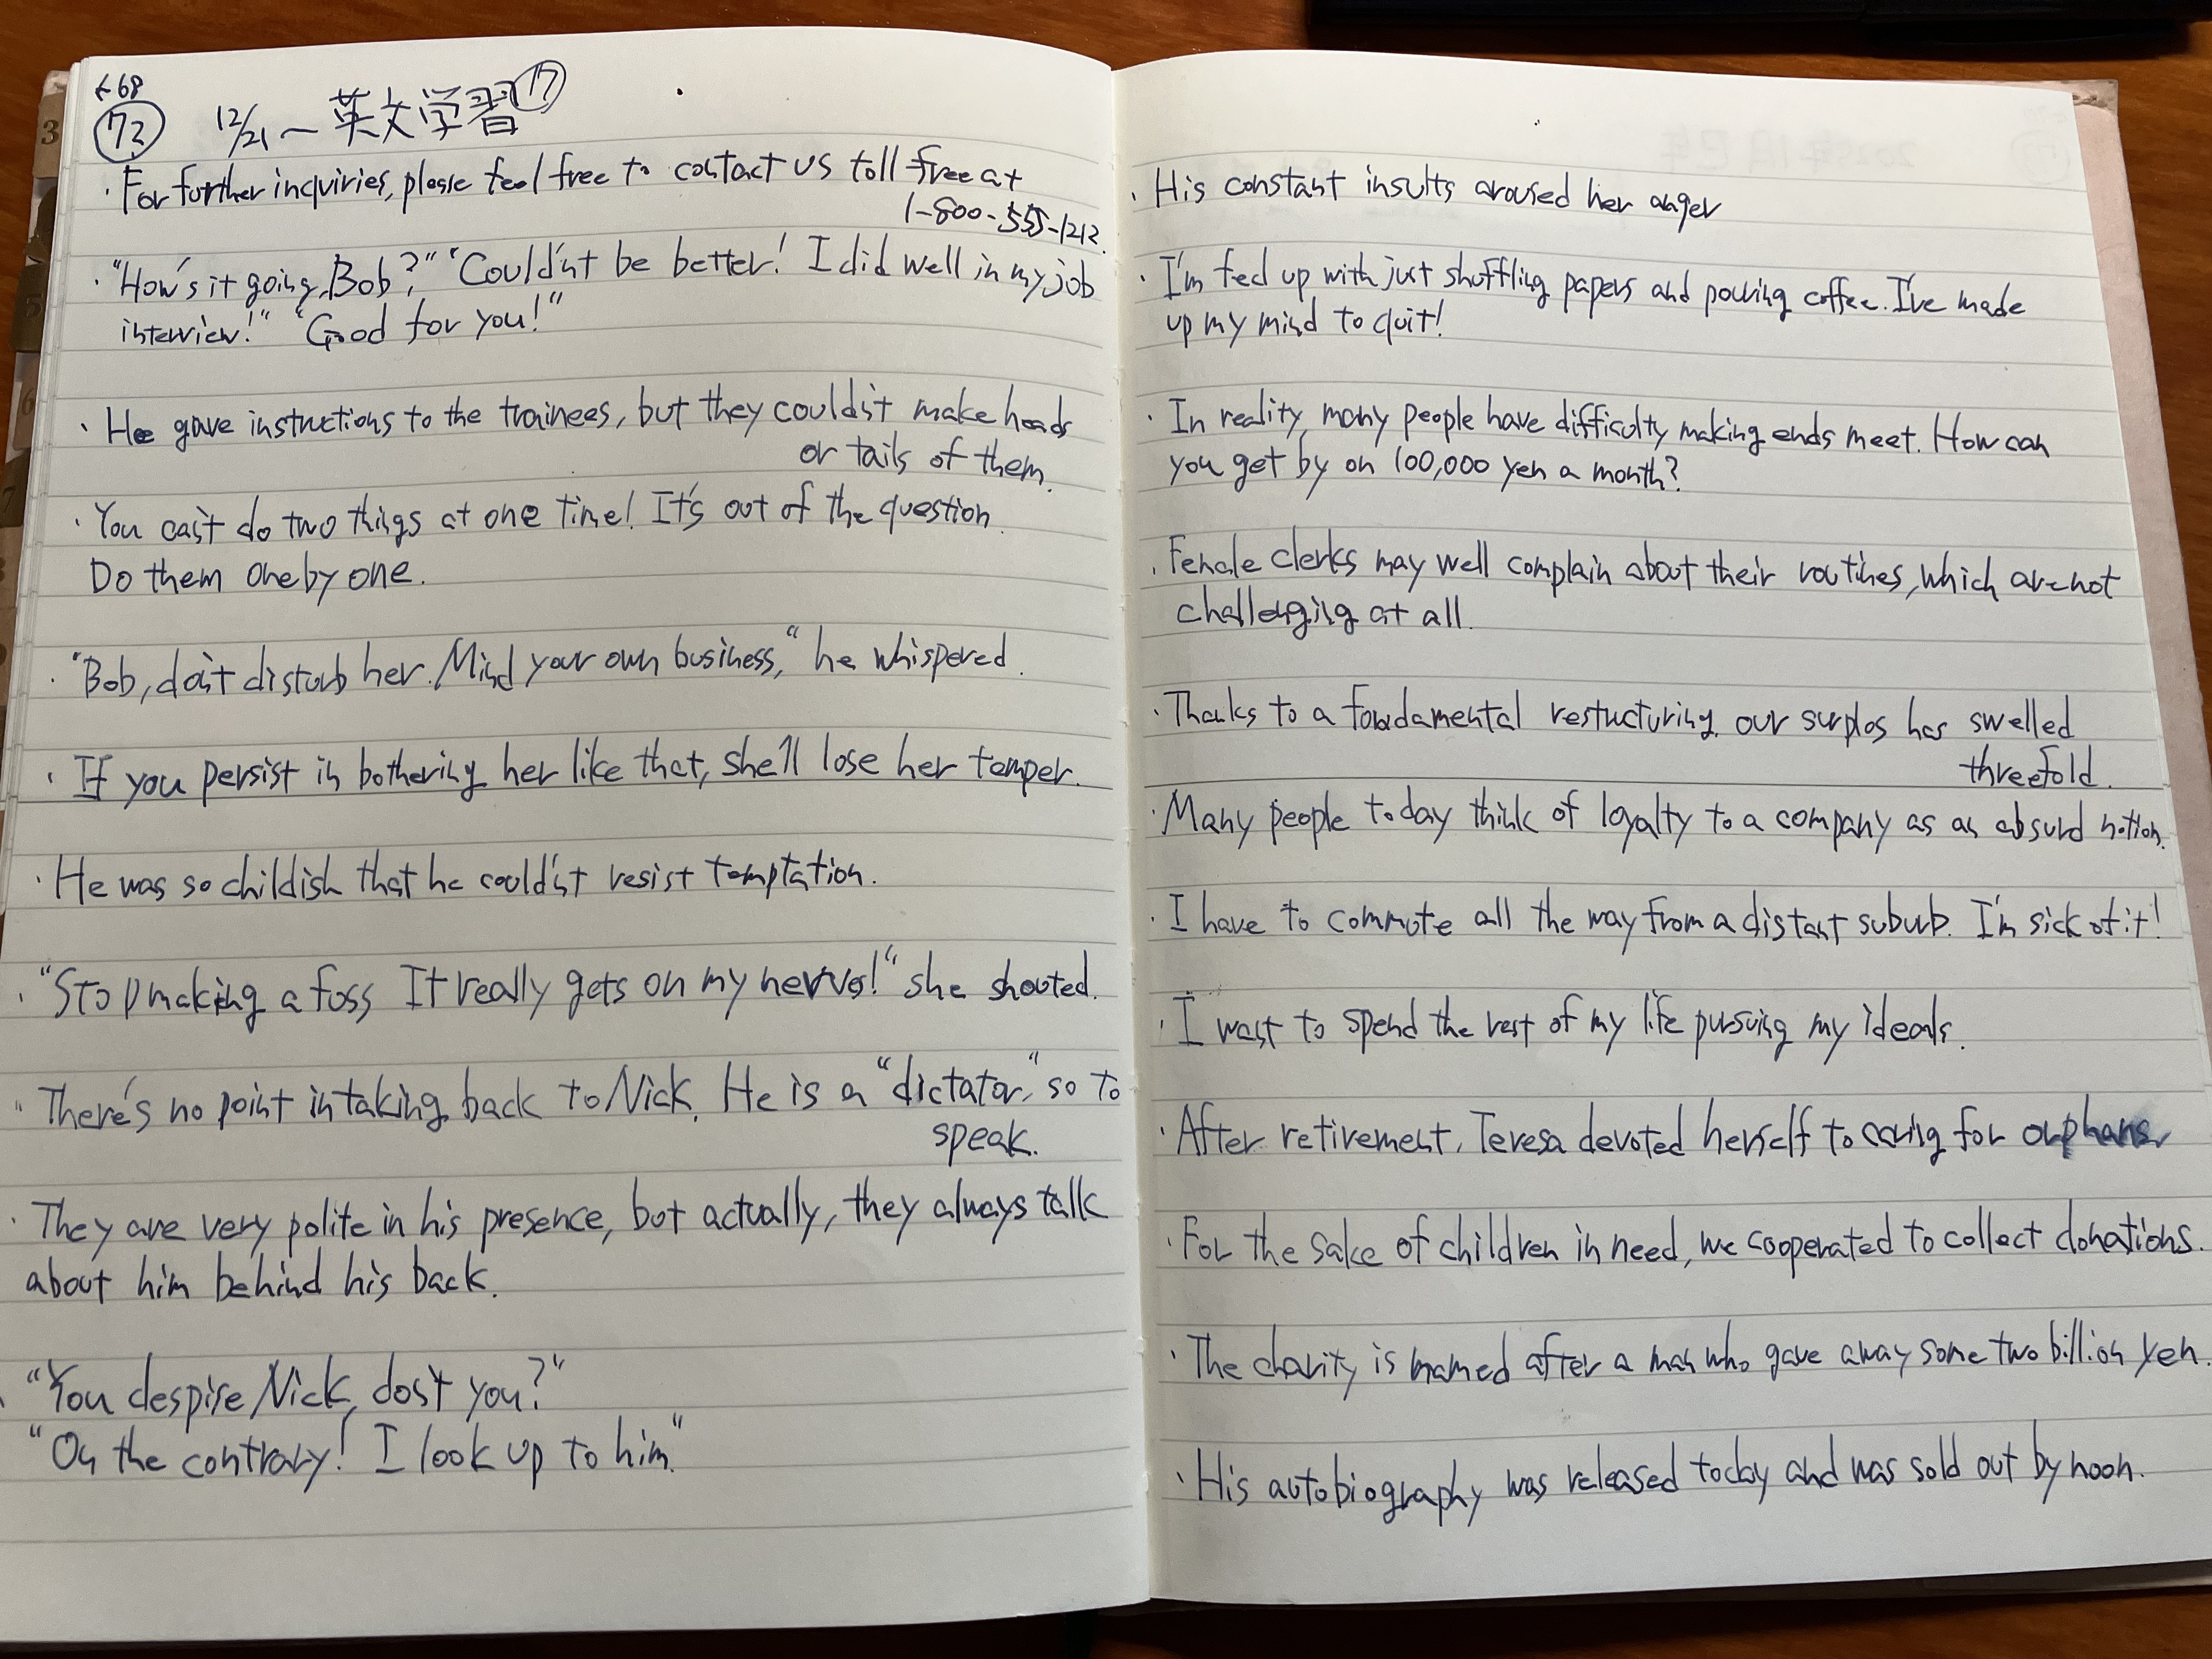 ←68
72 12/21〜英文学習⑰
·For further inquiries, please feel free to contact us toll free at
1-800-555-1212.
·"How's it going, Bob?" "Couldn't be better! I did well in my job
interview!" "Good for you!"
·He gave instructions to the trainees, but they couldn't make heads
or tails of them.
·You can't do two things at one time! It's out of the question.
Do them one by one.
·"Bob, don't disturb her. Mind your own business," he whispered.
·If you persist in bothering her like that, she'll lose her temper.
·He was so childish that he couldn't resist temptation.
·"Stop making a fuss. It really gets on my nerves!" she shouted.
·There's no point in taking back to Nick. He is a "dictator," so to
speak.
·They are very polite in his presence, but actually, they always talk
about him behind his back.
·"You despise Nick, don't you?"
"On the contrary! I look up to him."
·His constant insults aroused her anger
·I'm fed up with just shuffling papers and pouring coffee. I've made
up my mind to quit!
·In reality, many people have difficulty making ends meet. How can
you get by on 100,000 yen a month?
·Female clerks may well complain about their routines, which are not
challenging at all.
·Thanks to a foudamental restucturing, our surplus has swelled
threefold.
·Many people today think of loyalty to a company as an absurd notion.
·I have to commute all the way from a distant suburb. I'm sick of it!
·I want to spend the rest of my life pursuing my ideals.
·After retirement, Teresa devoted herself to caring for orphans
·For the sake of children in need, we cooperated to collect donations.
·The charity is named after a man who gave away some two billion yen.
·His autobiography was released today and was sold out by noon.